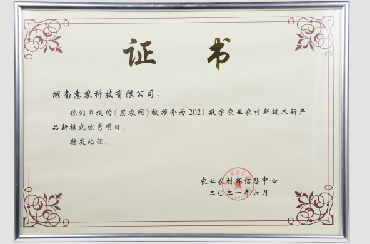 证书
湖南惠农科技有限公司：
你们申报的《惠农网》被推介为2021数字农业农村新技术新产
品新模式优秀项目。
特发此证。
农业农村部信息中心
二〇二一年六月